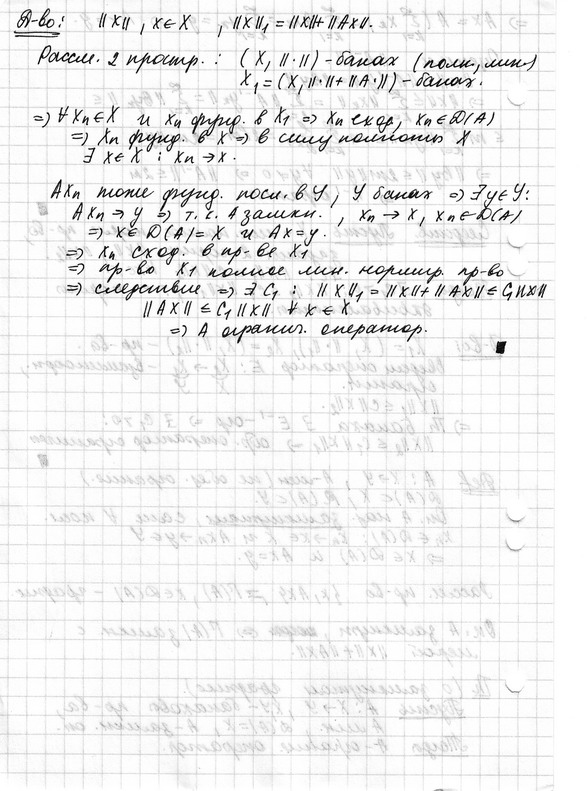 Д-во: ||x||, x∈X, ||x||₁ = ||x|| + ||Ax||.
Рассм. 2 простр.: (X, ||·||) - банах (полн, лин.)
X₁ = (X, ||·|| + ||A·||) - банах.
⇒ ∀ xₙ∈X и xₙ фунд. в X₁ ⇒ xₙ сход, xₙ∈D(A)
⇒ xₙ фунд. в X ⇒ в силу полноты X
∃ x∈X : xₙ → x.
Axₙ тоже фунд. посл. в Y, Y банах ⇒ ∃ y∈Y:
Axₙ → y ⇒ т.к. A замкн., xₙ → x, xₙ∈D(A)
⇒ x∈D(A) = X и Ax = y.
⇒ xₙ сход. в пр-ве X₁
⇒ пр-во X₁ полное лин. нормир. пр-во
⇒ следствие ⇒ ∃ C₁ : ||x||₁ = ||x|| + ||Ax|| ≤ C₁||x||
||Ax|| ≤ C₁||x|| ∀ x∈X
⇒ A огранич. оператор.